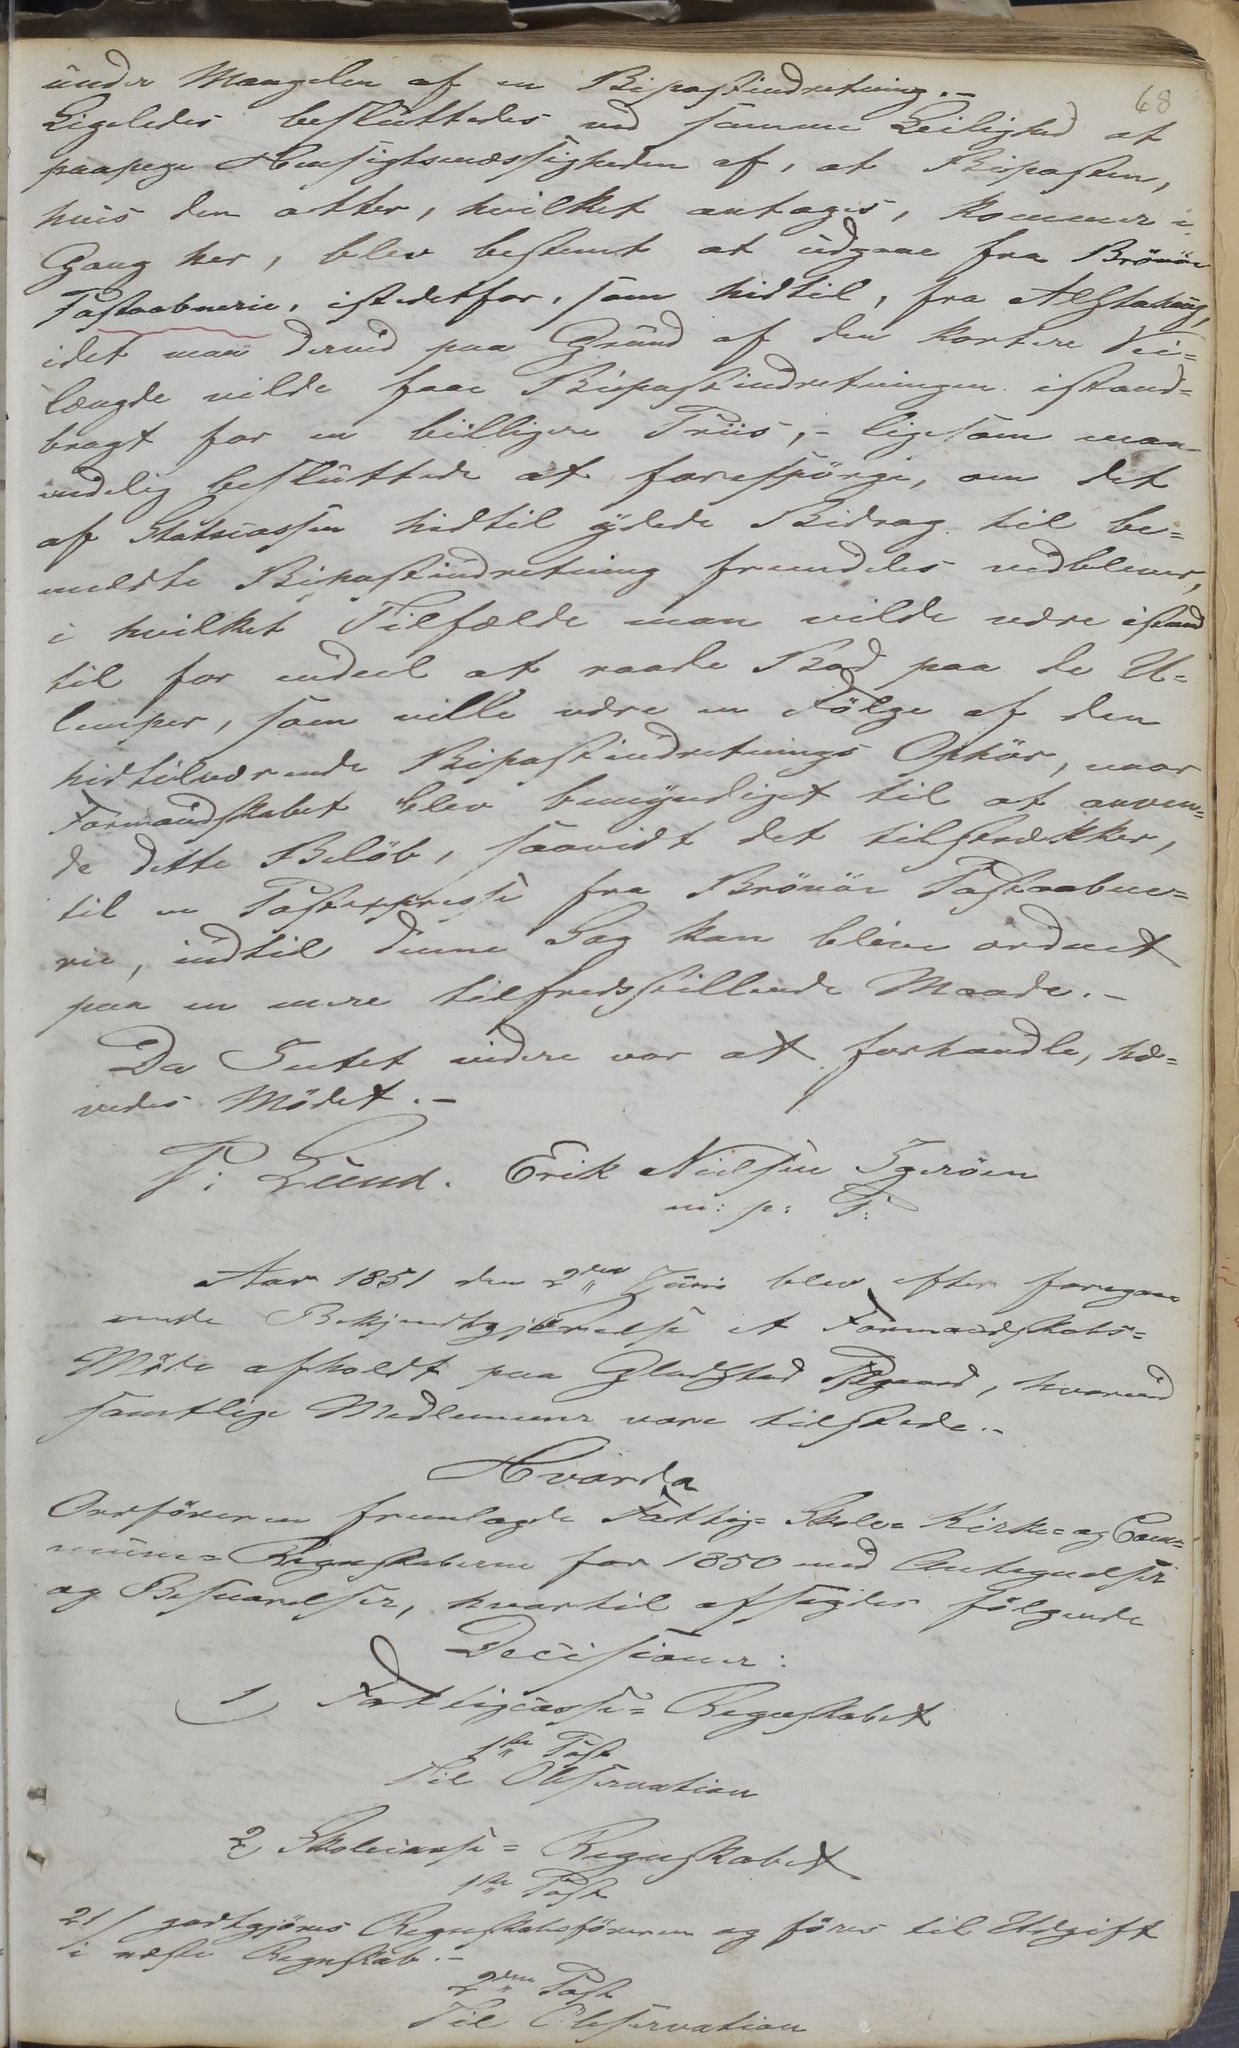 68
under Mangelen af en Bipostindretning.-
Ligeledes besluttedes ved samme Leilighed at
paapege Hensigtsmæssigheden af, at Biposten,
hvis den atter, hvilket antages, kommer i
Gang her, blev bestemt at udgaae fra Brönöe
Postaabnerie, istedetfor, som hidtil, fra Alstahaug,
idet man derved paa Grund af den kortere Vei=
længde vilde faae Bipostindretningen istand=
bragt for en billigere Priis,- ligesom man
endelig besluttede at forespörge, om det
af Statscassen hidtil ydede Bidrag til be=
meldte Bipostindretning fremdeles vedblever,
i hvilket Tilfælde man vilde være istand
til for endeel at raade Bod paa de U=
lemper, som ville være en Fölge af den
hidtilværende Bipostindretnings Ophör, naar
Formandskabet blev bemyndiget til at anven=
de dette Belöb, saavidt det tilstrækker,
til en Postexpresse fra Brönöe Postaabne=
rie, indtil denne Sag kan blive ordnet
paa en mere tilfredsstillende Maade.-
Da Intet videre var at forhandle, hæ=
vedes Mödet.-
P: Lund. Erik Nielsen Igeröen
m: p: P:
Aar 1851 den 2den Juni blev efter foregaa
ende Bekjendtgjörelse et Formandskabs=
Möde afholdt paa Gladstad Pgaard, hvorved
samtlige Medlemmer vare tilstede.-
Hvorda
Ordföreren fremlagde Fattig= Skole= Kirke= og Com=
mune= Regnskaberne for 1850 med Antegnelser
og Besvarelser, hvortil afsagdes fölgende
Decisioner:
1) Fattigcasse= Regnskabet
1ste Post
Til Observation
2 Skolecasse= Regnskabet
1ste Post
21 / godtgjöres Regnskabsföreren og föres til Udgift
i næste Regnskab.-
2den Post
Til Observation